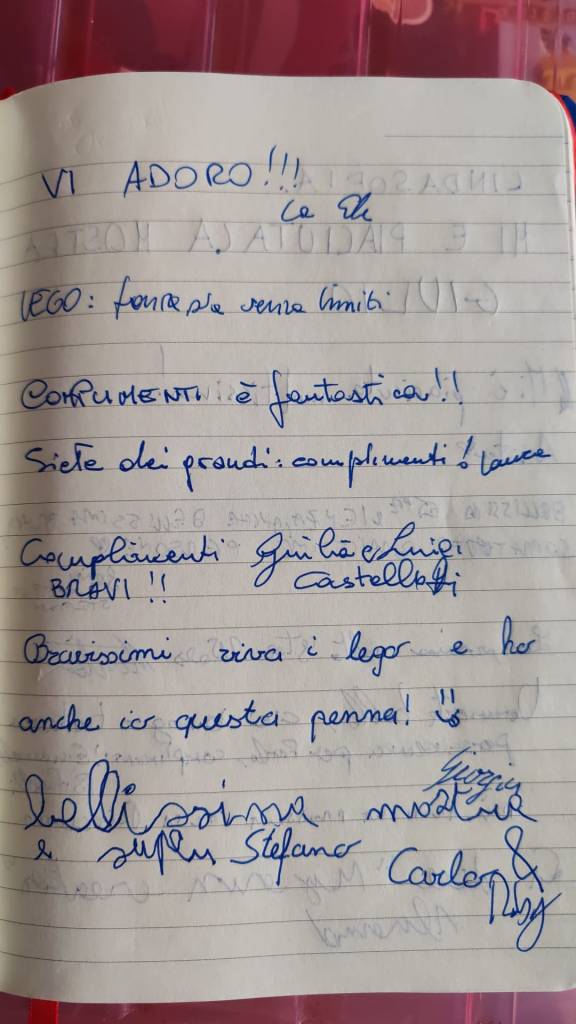 VI ADORO!!!
La Ele
LEGO: fantasia senza limiti
COMPLIMENTI è fantastica!!
Siete dei grandi: complimenti! Laura
Complimenti Giulia e Luigi
BRAVI!! Castellani
Bravissimi viva i lego e ho
anche io questa penna!
Giorgia
bellissima mostra
e super Stefano Carlo &
Roby